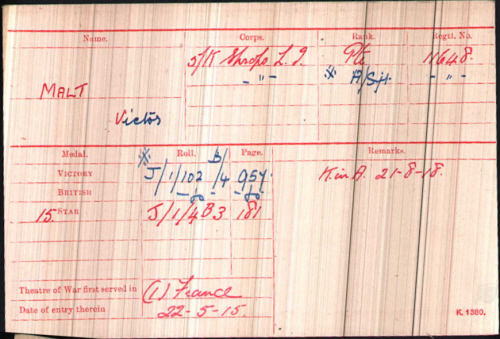 Name. Corps. Rank. Regtl. No.
5/K Shrops L.I. Pte 11648.
- " - * A/Sjt - " -
MALT
Victor
Medal. * Roll. B/ Page. Remarks.
VICTORY J/1/102 /4 957 K in A. 21-8-18.
BRITISH - do - do
15 STAR J/1/4 B3 181
Theatre of War first served in (1) France
Date of entry therein 22-5-15.
K. 1380.